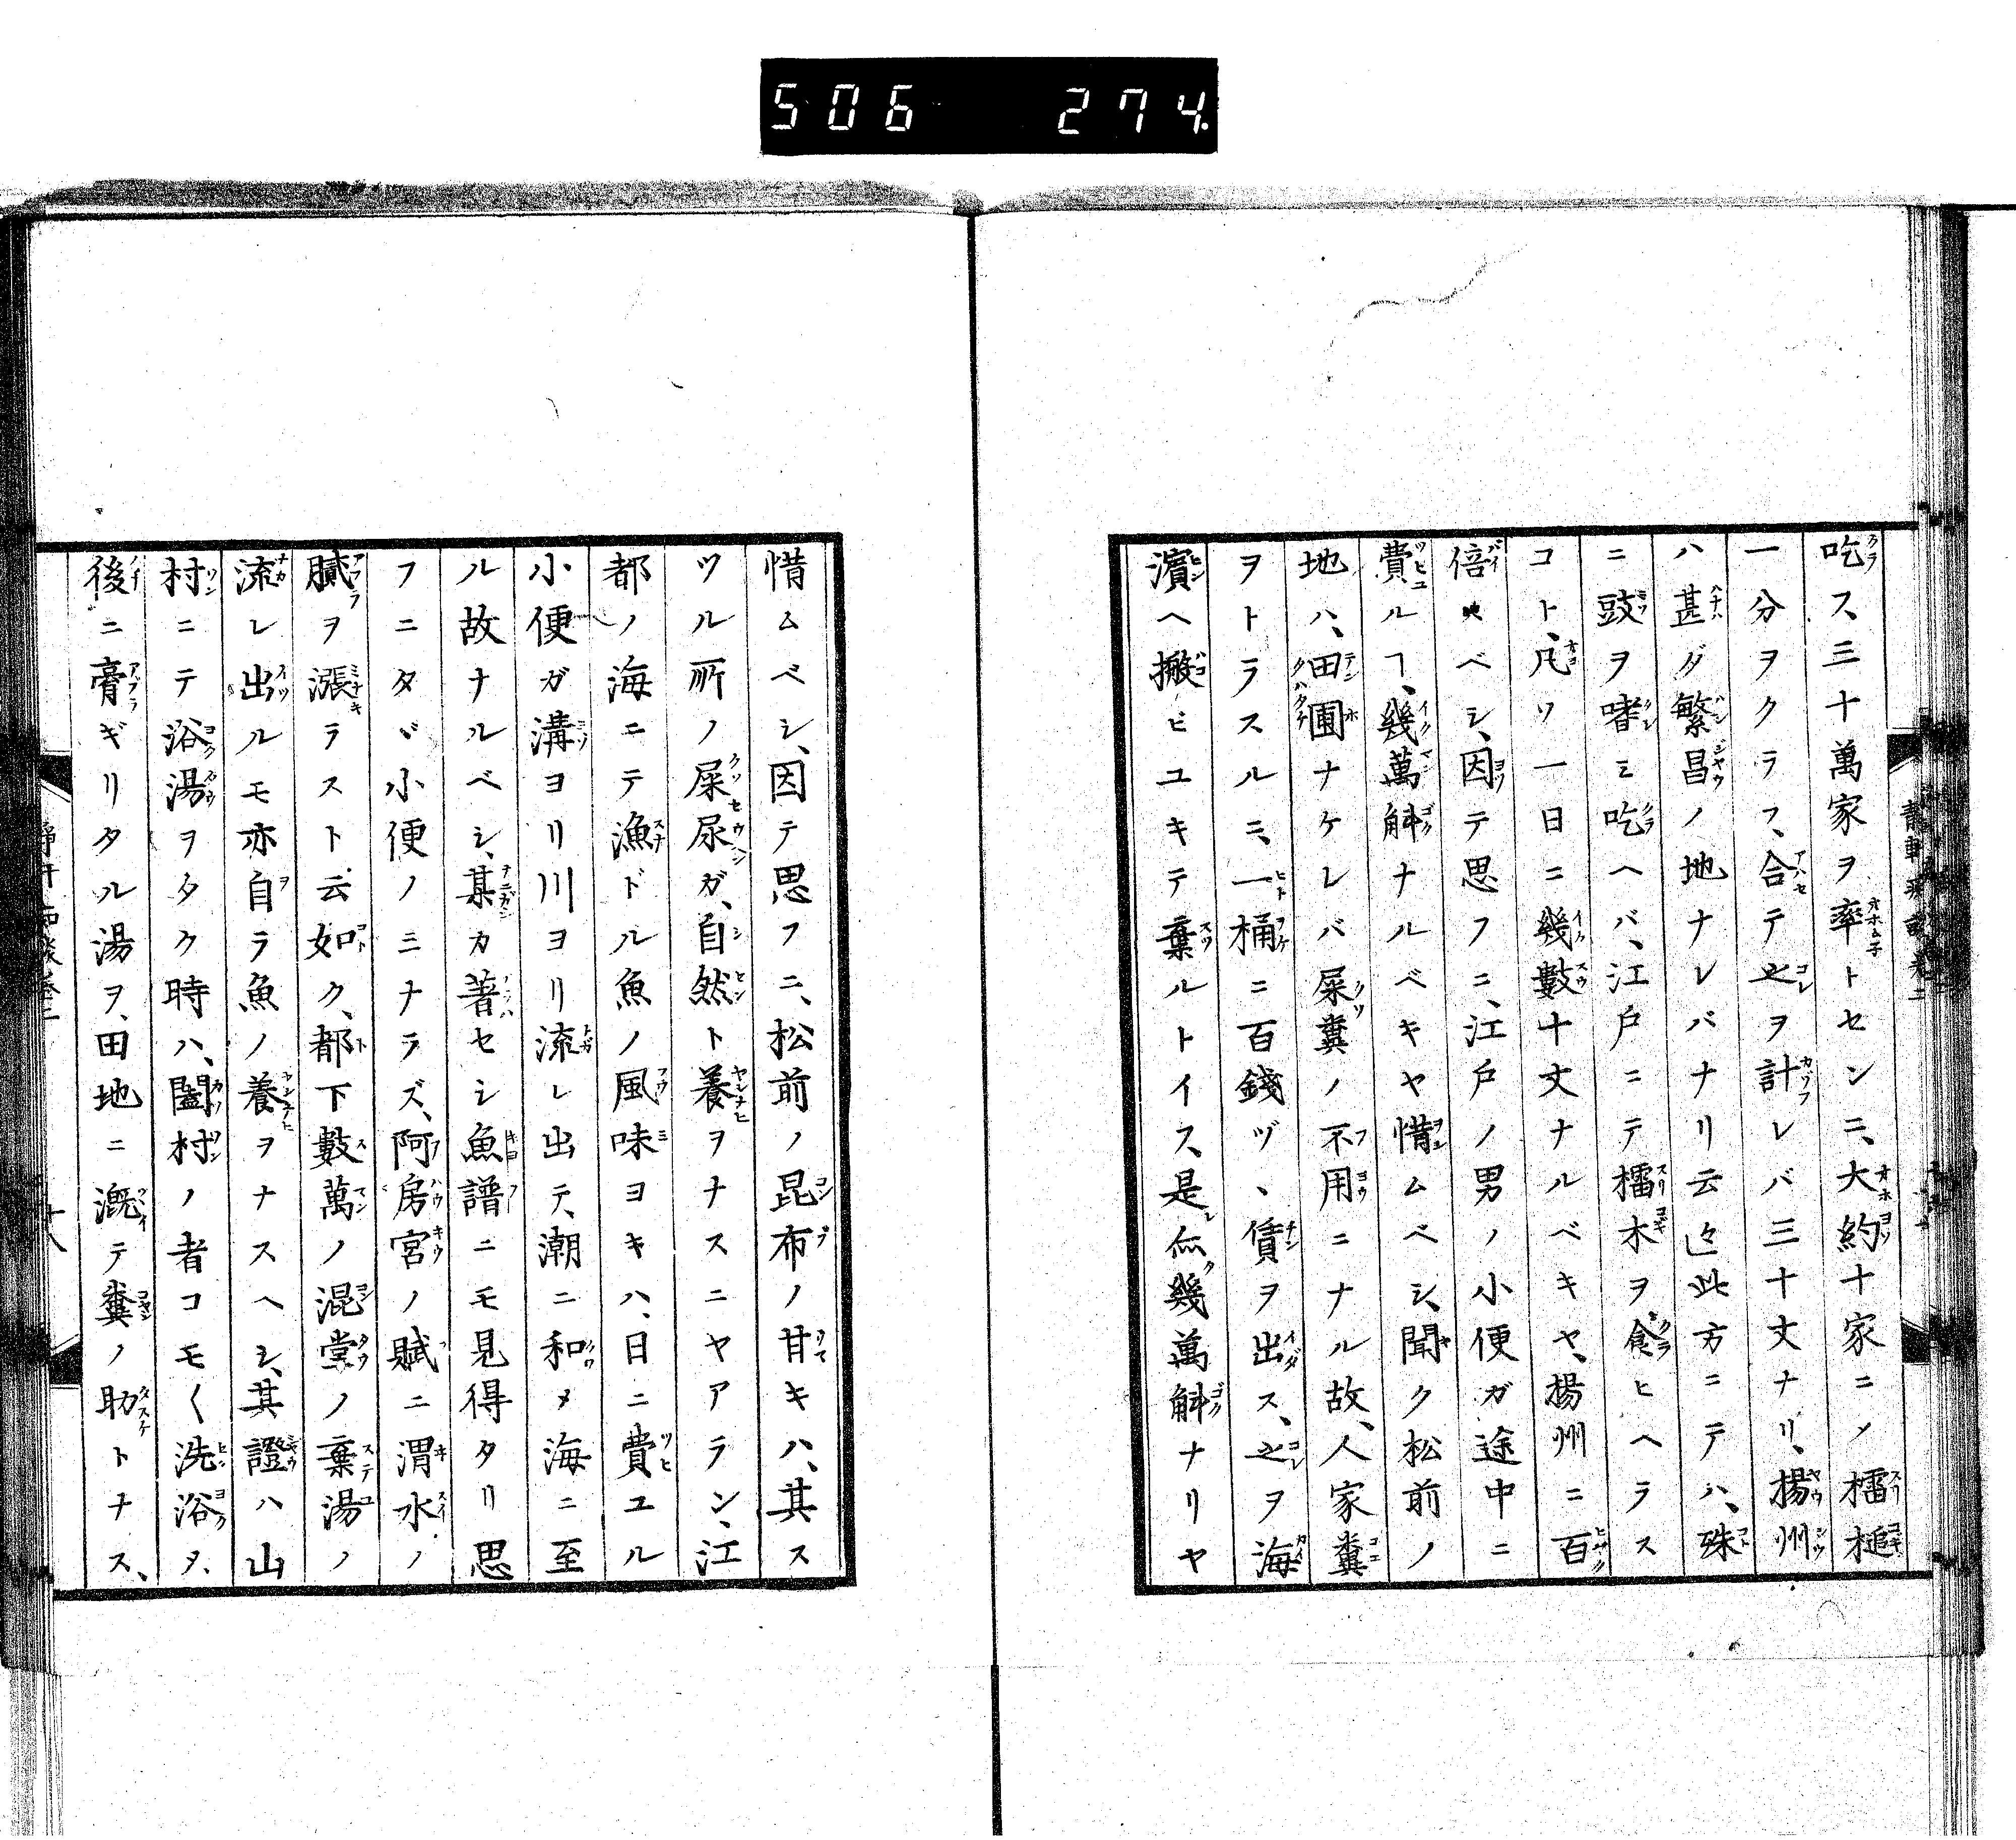 506 274.
吃ス、三十萬家ヲ率トセンニ、大約十家ニノ櫺槌
一分ヲクラフ、合テ之ヲ計レバ三十丈ナリ、揚州
ハ甚ダ繁昌ノ地ナレバナリ云々」此方ニテハ、殊
ニ豉ヲ嗜ミ吃ヘバ、江戸ニテ櫺木ヲ食ヒヘラス
コト、凡ソ一日ニ幾數十丈ナルベキヤ、揚州ニ百
倍スベシ、因テ思フニ、江戸ノ男ノ小便ガ途中ニ
費ルヿ、幾萬斛ナルベキヤ惜ムベシ、聞ク松前ノ
地ハ、田圃ナケレバ屎糞ノ不用ニナル故、人家糞
ヲトラスルニ、一桶ニ百錢ヅヽ賃ヲ出ス、之ヲ海
濱ヘ搬ビユキテ棄ルトイス、是亦幾萬斛ナリヤ
惜ムベシ、因テ思フニ、松前ノ昆布ノ甘キハ、其ス
ツル所ノ屎尿ガ、自然ト養ヲナスニヤアラン、江
都ノ海ニテ漁ドル魚ノ風味ヨキハ、日ニ費ユル
小便ガ溝ヨリ川ヨリ流レ出テ、潮ニ和メ海ニ至
ル故ナルベシ、某カ著セシ魚譜ニモ見得タリ思
フニタヾ小便ノミナラズ、阿房宮ノ賦ニ渭水ノ
膩ヲ漲ラスト云如ク、都下數萬ノ混堂ノ棄湯ノ
流レ出ルモ亦自ラ魚ノ養ヲナスヘシ、其證ハ山
村ニテ浴湯ヲタク時ハ、闔村ノ者コモ〱洗浴タ、
後ニ膏ギリタル湯ヲ、田地ニ漑テ糞ノ助トナス、